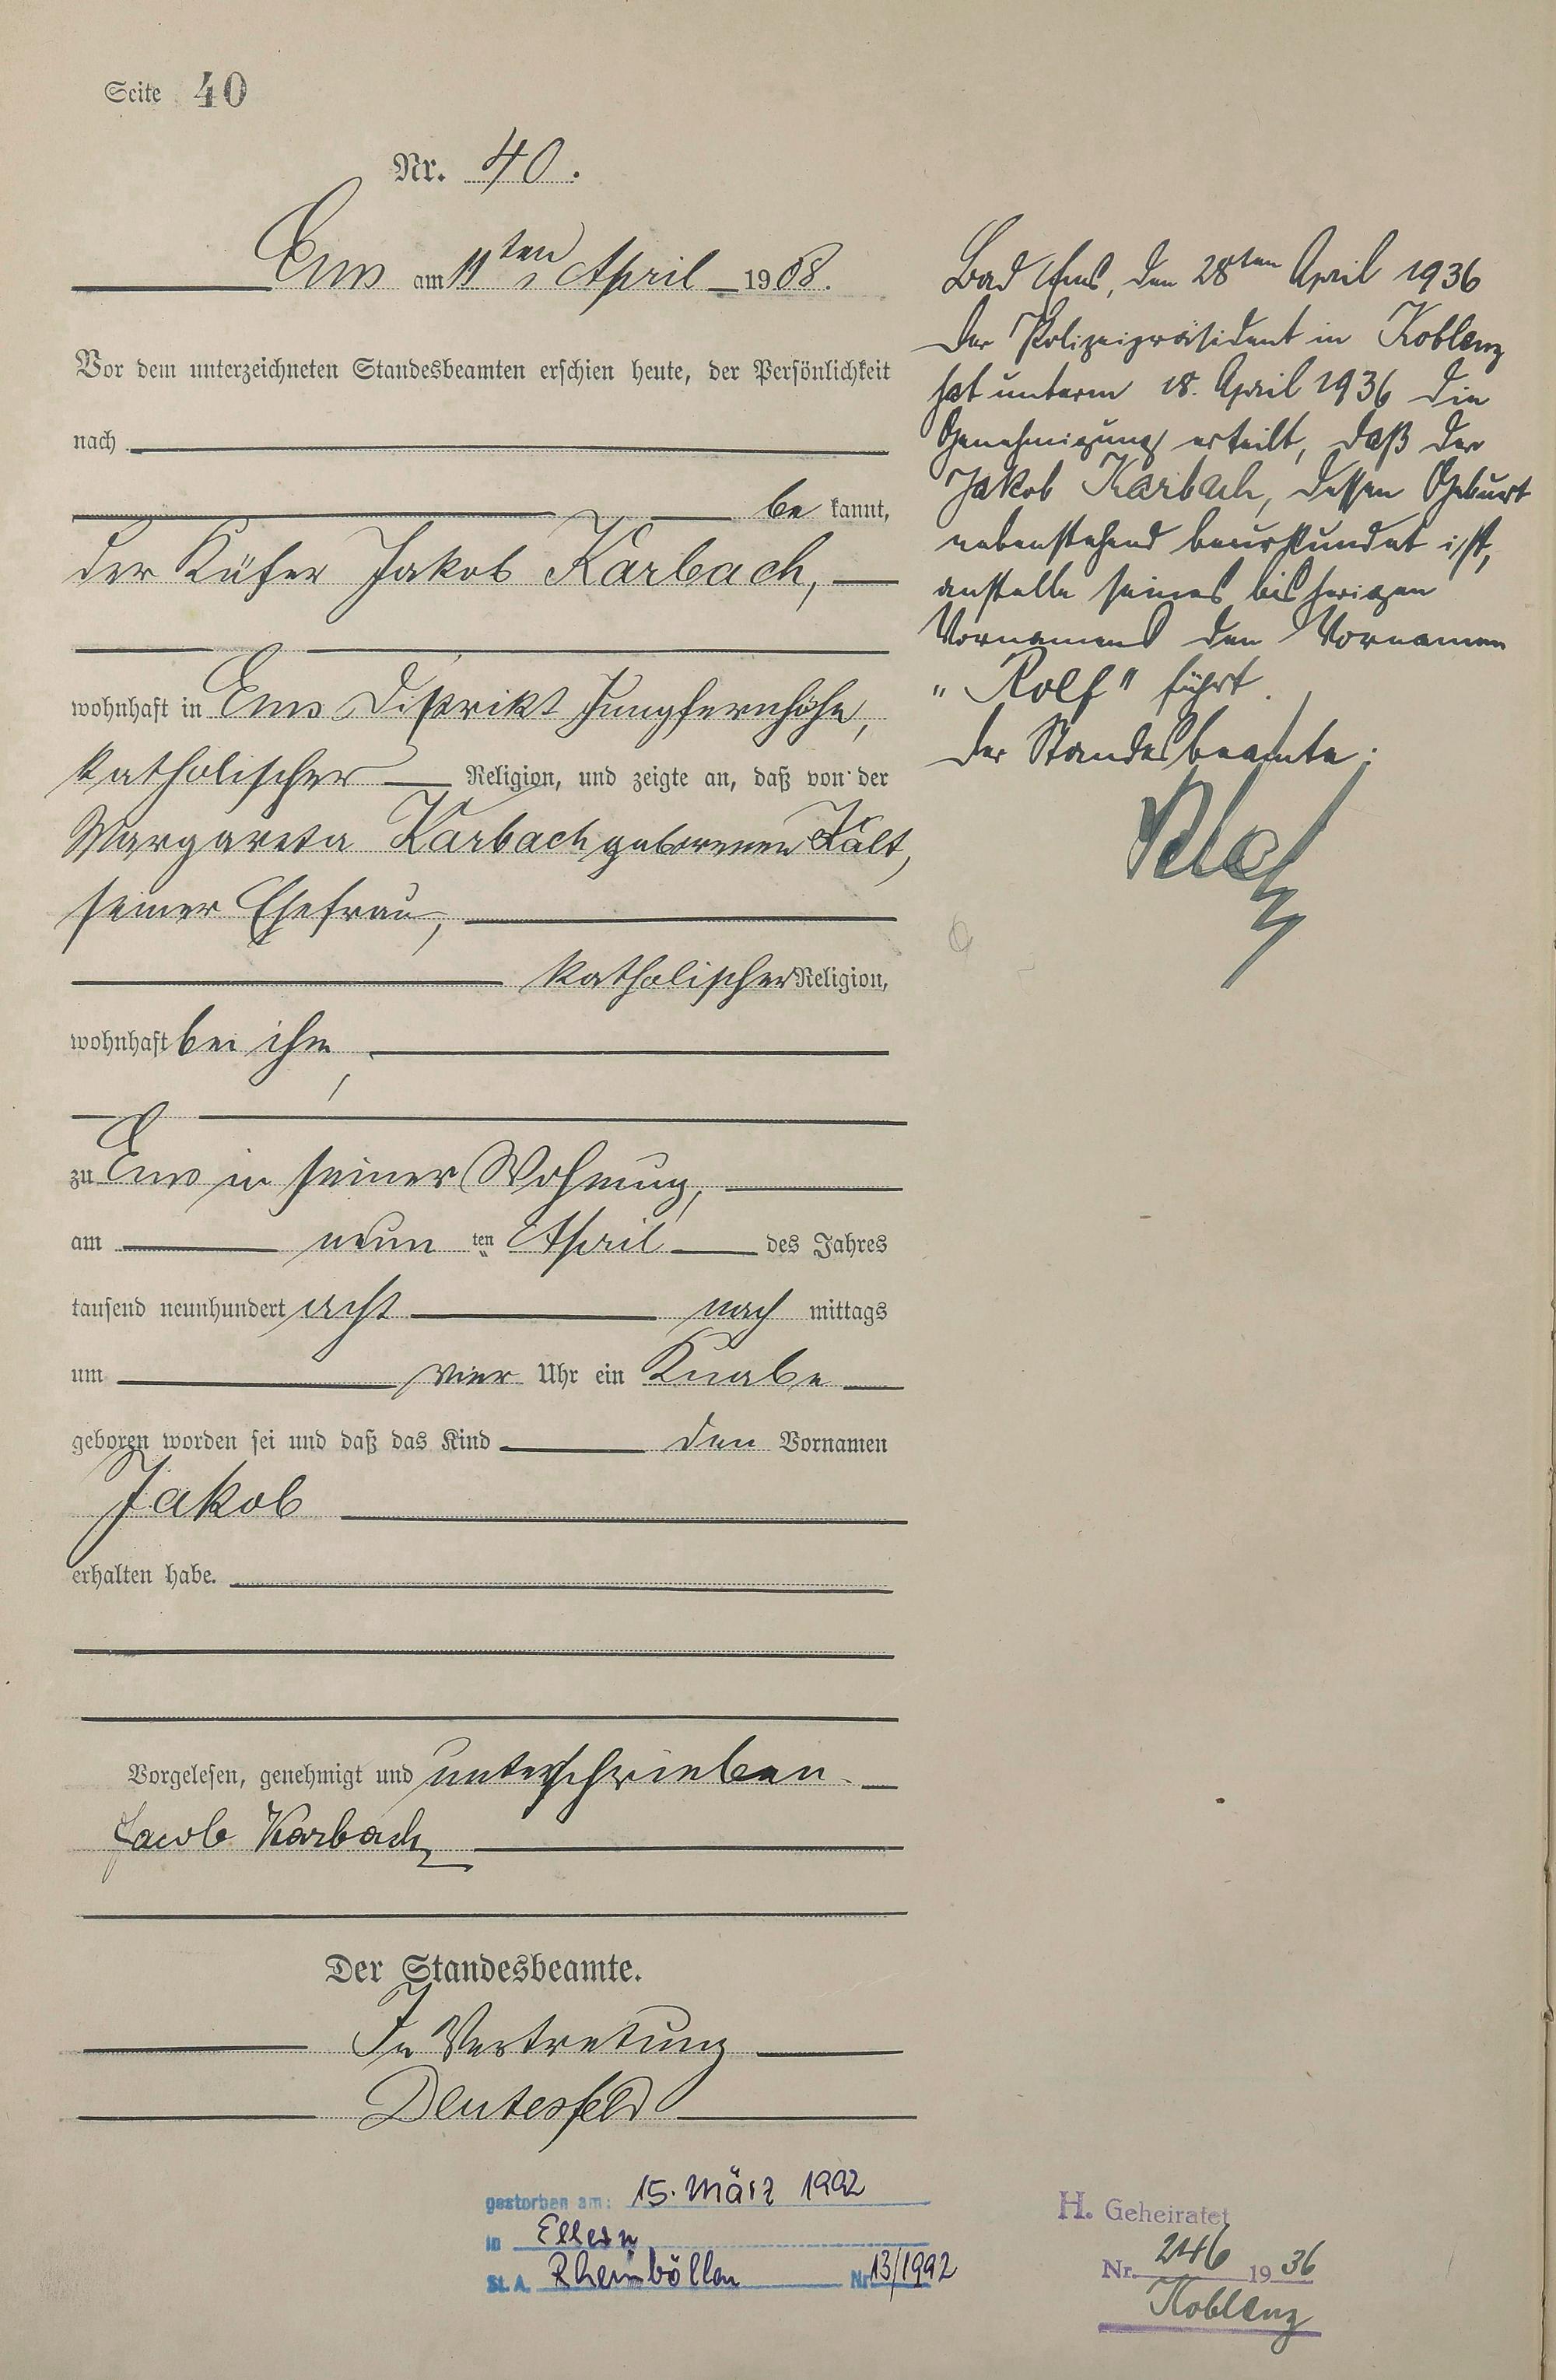 Seite 40
Nr. 40.
Ems am 11ten April 1908.
Vor dem unterzeichneten Standesbeamten erschien heute, der Persönlichkeit
nach
be kannt,
der Küfer Jakob Karbach,
wohnhaft in Ems Distrikt Jungfernhöhe,
katholischer Religion, und zeigte an, daß von der
Margareta Karbach geborenen Kalt,
seiner Ehefrau,
katholischer Religion,
wohnhaft bei ihm,
zu Ems in seiner Wohnung,
am neun ten April des Jahres
tausend neunhundert acht nach mittags
um vier Uhr ein Knabe
geboren worden sei und daß das Kind den Vornamen
Jakob
erhalten habe.
Vorgelesen, genehmigt und unterschrieben
Jacob Karbach
Der Standesbeamte.
In Vertretung
Deutesfeld
Bad Ems, den 28ten April 1936
Der Polizeipräsident in Koblenz
hat unterm 18. April 1936 die
Genehmigung erteilt, daß der
Jakob Karbach, dessen Geburt
nebenstehend beurkundet ist,
anstelle seines bisherigen
Vornamens den Vornamen
„Rolf" führt.
Der Standesbeamte:
gestorben am: 15. März 1992
in Ellern
St. A. Rheinböllen Nr. 13/1992
H. Geheiratet
Nr. 246 1936
Koblenz